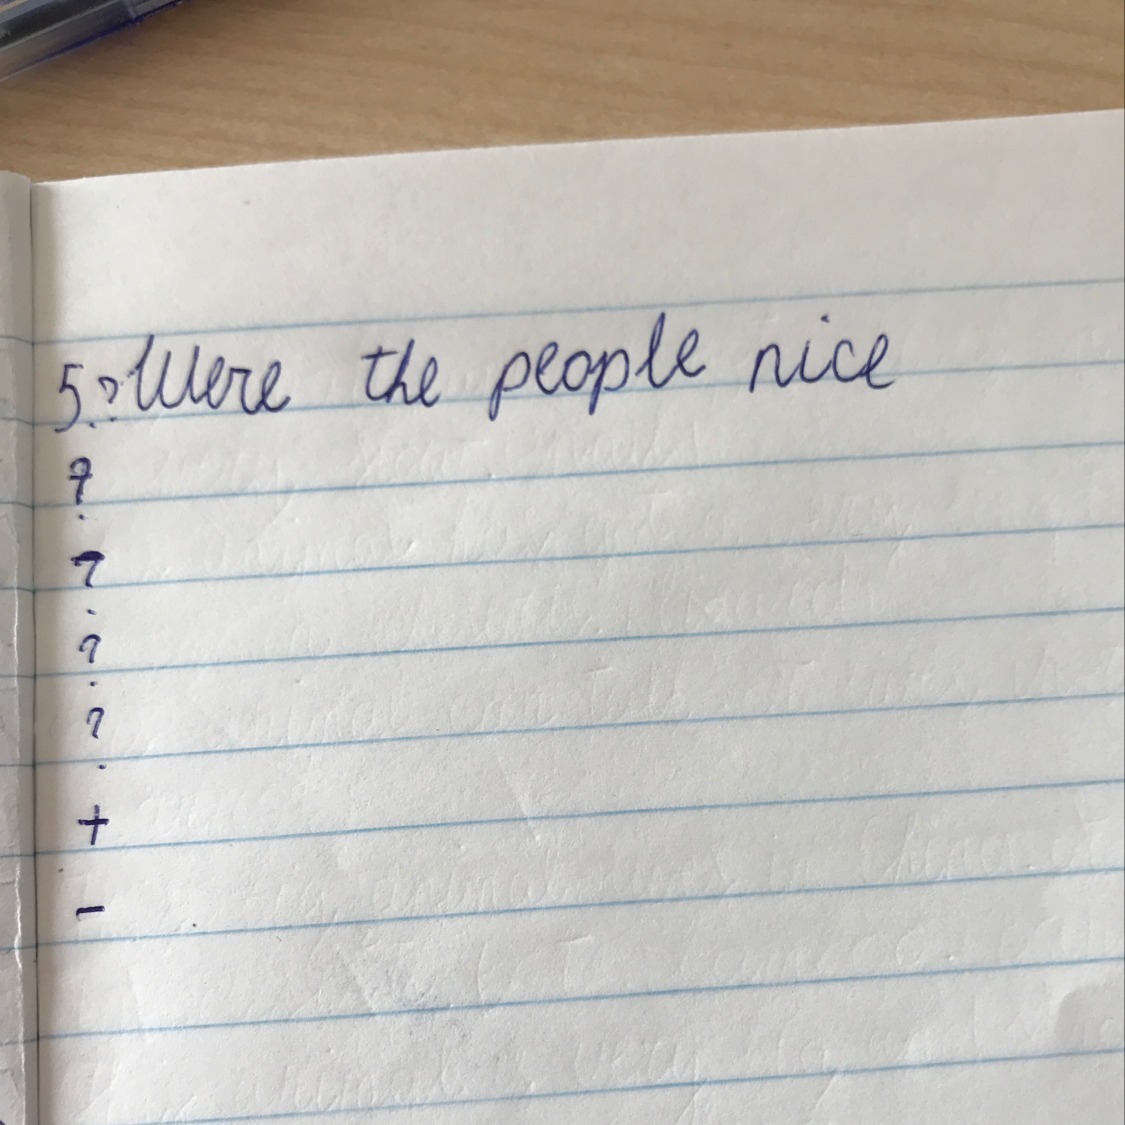 5.? Were the people nice
?
?
?
?
+
-